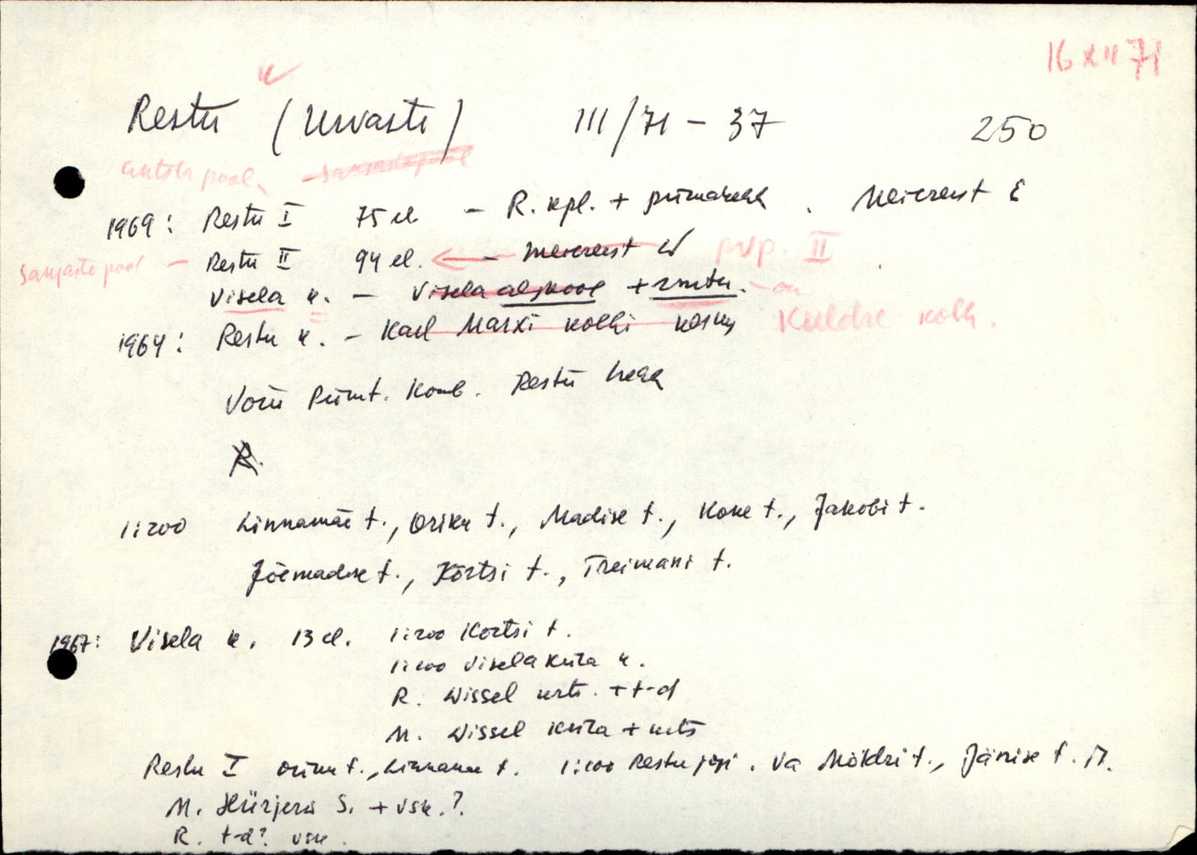 16 XII 71
Restu (Urvaste) III/71 - 37 250
antsla pool, sangastepool
1969: Restu I 75 el - R. kpl. + piimakoda. Meiereist E
Sangaste pool - Restu II 94 el. ← - meiereist W pvp. II
Visela k. - Visela algkool + rmtu. - on
1964: Restu k. - Karl Marxi kolhi keskus Kuldre kolh.
Võru Piimt. Komb. Restu
R.
1:200 Linnamäe t., Oriku t., Madise t., Kone t., Jakobi t.
Jõemadise t., Kõrtsi t., Treimani t.
1967: Visela k. 13 el. 1:200 Kõrtsi t.
1:100 Viselaküla k.
R. Wissel + t-d
M. Wissel küla + mts
Restu I t., Linnamäe t. 1:100 Restu jõgi. va Möldri t., Jänise t. M.
M. Hürjera S. + vsk.?
R. t-d? vsk.